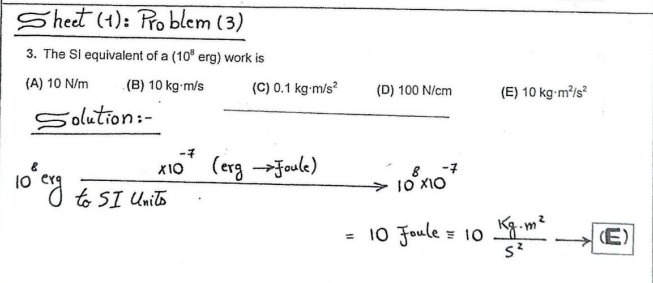 Sheet (1): Problem (3)
3. The SI equivalent of a (10⁸ erg) work is
(A) 10 N/m (B) 10 kg·m/s (C) 0.1 kg·m/s² (D) 100 N/cm (E) 10 kg·m²/s²
Solution:-
10⁸ erg ×10⁻⁷ (erg → Joule) to SI Units → 10⁸ ×10⁻⁷
= 10 Joule ≡ 10 Kg.m²/S² → (E)